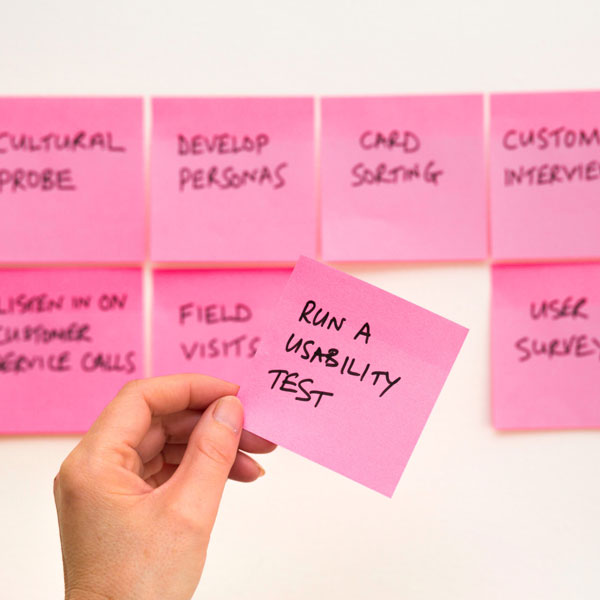 CULTURAL
PROBE
DEVELOP
PERSONAS
CARD
SORTING
CUSTOM
INTERVIE
LISTEN IN ON
CUSTOMER
SERVICE CALLS
FIELD
VISITS
RUN A
USABILITY
TEST
USER
SURVEY